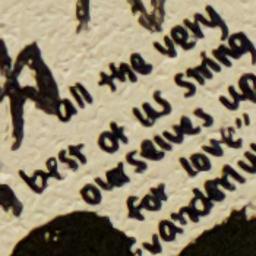 all the very
best of us string
ourselves up
for love"